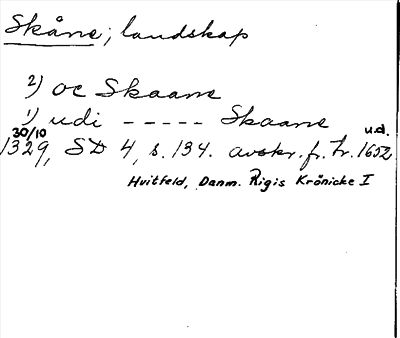 Skåne; landskap
2) oc Skaane
1) udi ----- Skaane
30/10 u.d.
1329, SD 4, s. 134. avskr. fr. tr. 1652
Huitfeld, Danm. Rigis Krönicke I